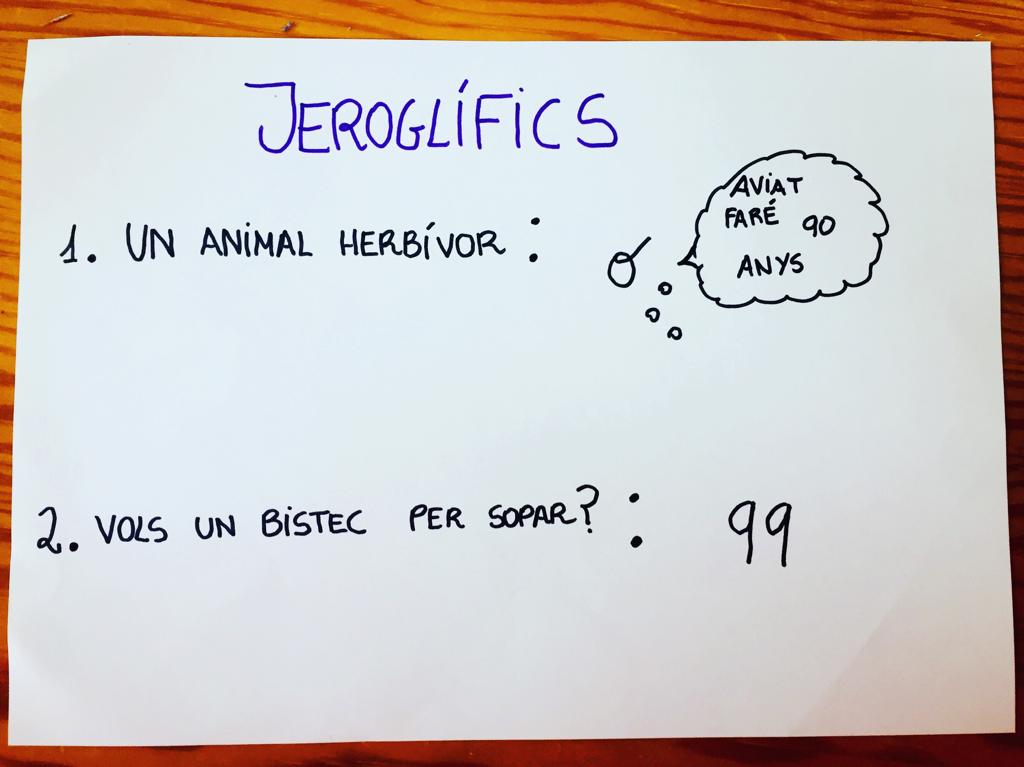 JEROGLÍFICS
1. UN ANIMAL HERBÍVOR :
AVIAT
FARÉ 90
ANYS
2. VOLS UN BISTEC PER SOPAR? : 99